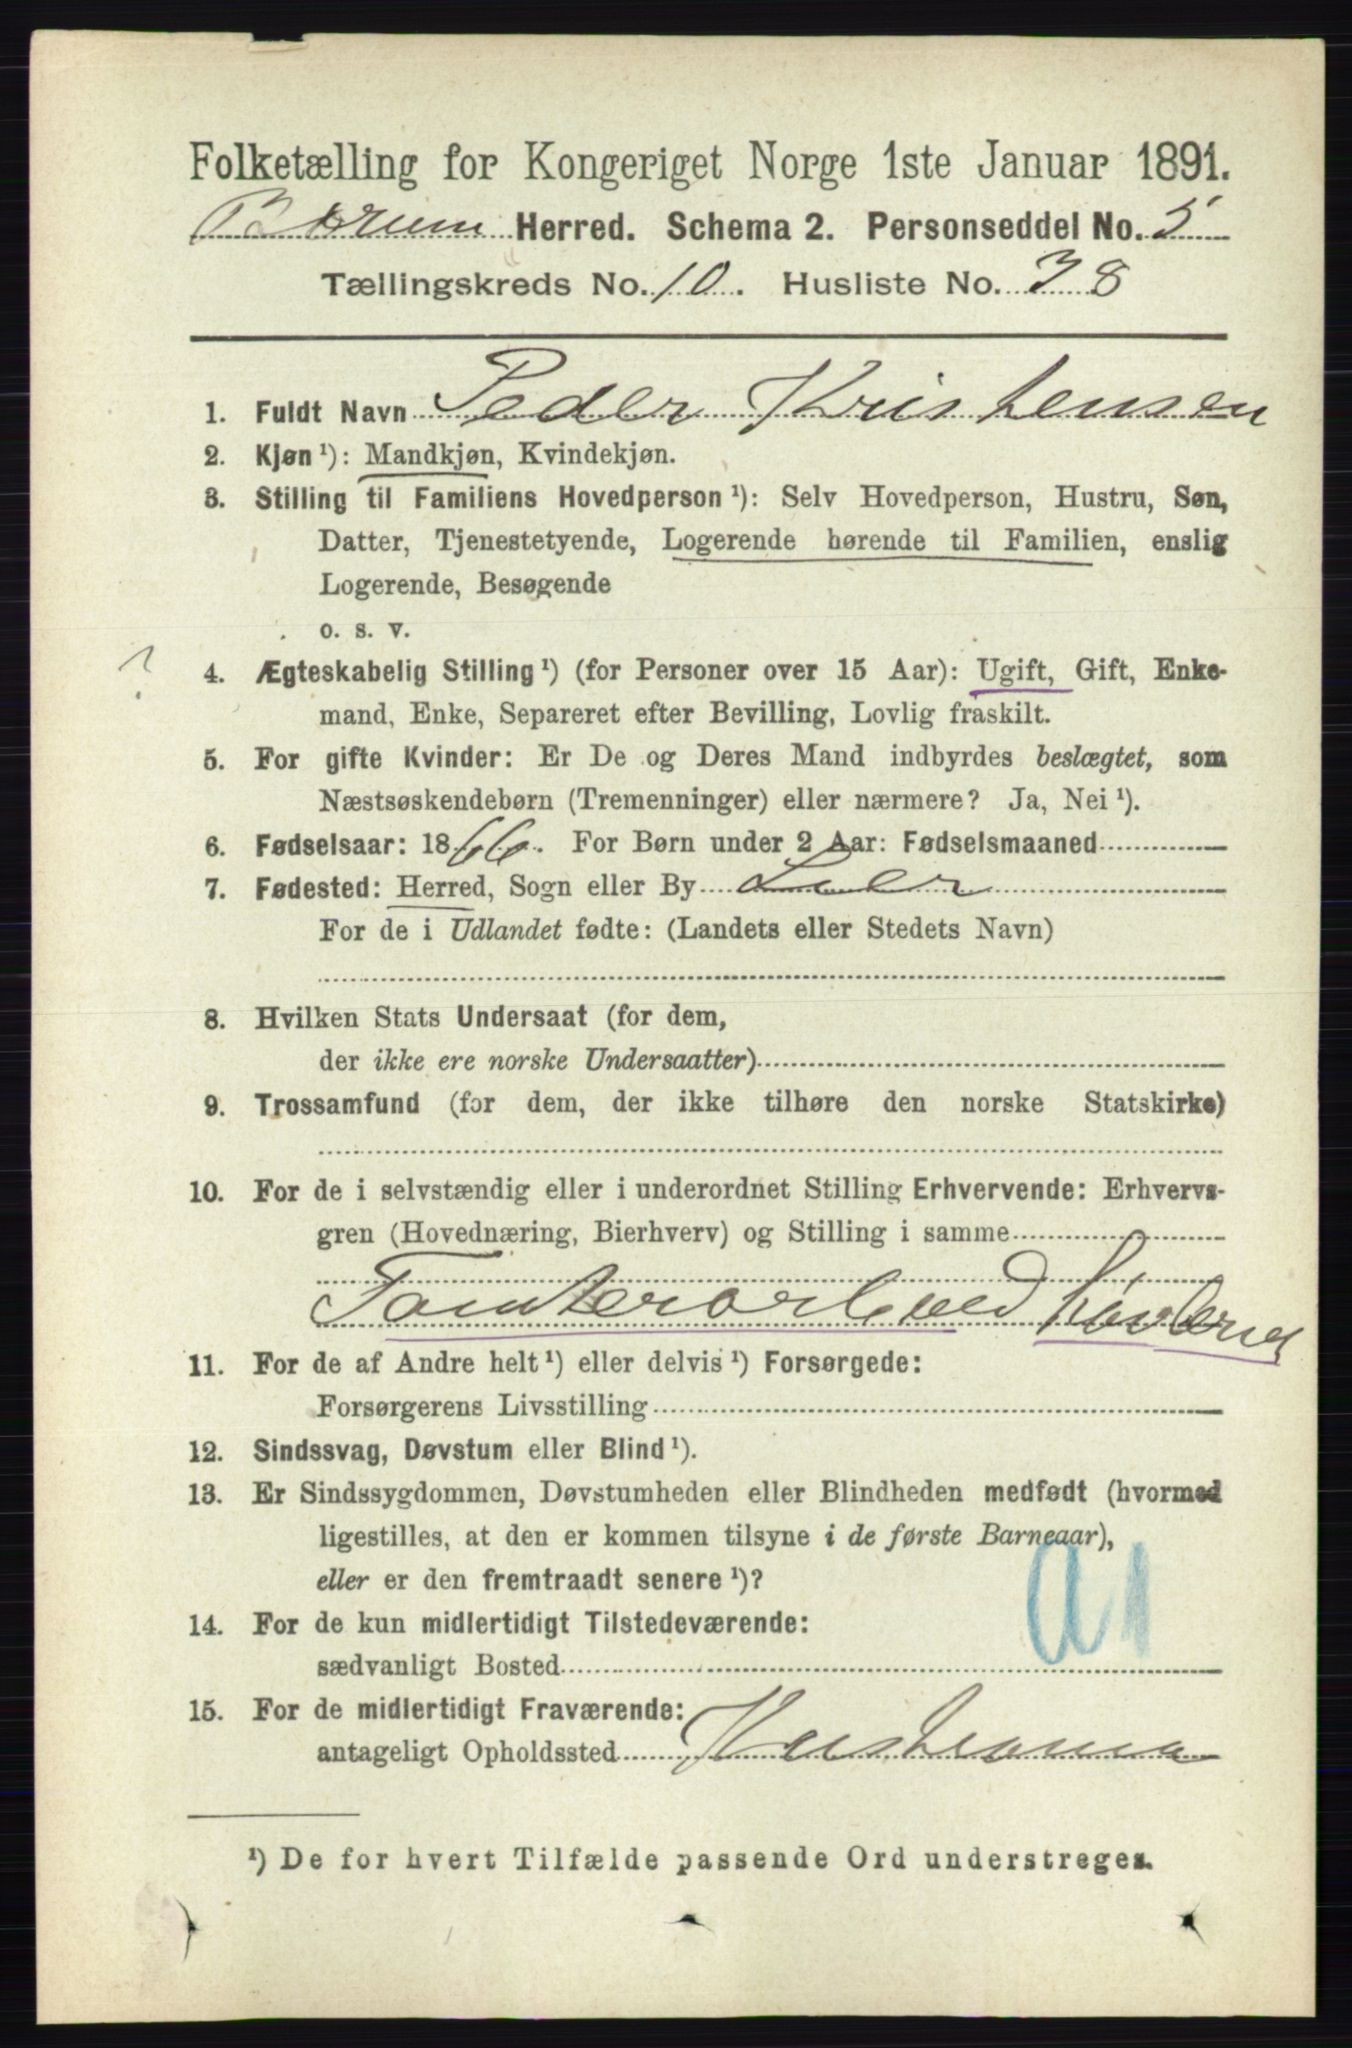 Folketælling for Kongeriget Norge 1ste Januar 1891.
Bærum Herred. Schema 2. Personseddel No. 5
Tællingskreds No. 10. Husliste No. 38
1. Fuldt Navn Peder Kristensen
2. Kjøn ¹): Mandkjøn, Kvindekjøn.
3. Stilling til Familiens Hovedperson ¹): Selv Hovedperson, Hustru, Søn,
Datter, Tjenestetyende, Logerende hørende til Familien, enslig
Logerende, Besøgende
o. s. v.
? 4. Ægteskabelig Stilling ¹) (for Personer over 15 Aar): Ugift, Gift, Enke-
mand, Enke, Separeret efter Bevilling, Lovlig fraskilt.
5. For gifte Kvinder: Er De og Deres Mand indbyrdes beslægtet, som
Næstsøskendebørn (Tremenninger) eller nærmere? Ja, Nei ¹).
6. Fødselsaar: 1866. For Børn under 2 Aar: Fødselsmaaned
7. Fødested: Herred, Sogn eller By Lier
For de i Udlandet fødte: (Landets eller Stedets Navn)
8. Hvilken Stats Undersaat (for dem,
der ikke ere norske Undersaatter)
9. Trossamfund (for dem, der ikke tilhøre den norske Statskirke)
10. For de i selvstændig eller i underordnet Stilling Erhvervende: Erhvervs-
gren (Hovednæring, Bierhverv) og Stilling i samme
Tomterarb ved
11. For de af Andre helt ¹) eller delvis ¹) Forsørgede:
Forsørgerens Livsstilling
12. Sindssvag, Døvstum eller Blind ¹).
13. Er Sindssygdommen, Døvstumheden eller Blindheden medfødt (hvormed
ligestilles, at den er kommen tilsyne i de første Barneaar),
eller er den fremtraadt senere ¹)?
a1
14. For de kun midlertidigt Tilstedeværende:
sædvanligt Bosted
15. For de midlertidigt Fraværende:
antageligt Opholdssted
¹) De for hvert Tilfælde passende Ord understreges.